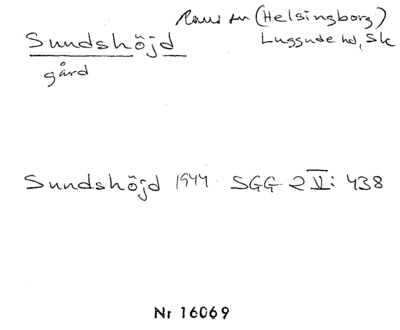 Raus sn (Helsingborg)
Sundshöjd Luggude hd, Sk
gård
Sundshöjd 1944 SGG 2 V: 438
Nr 16069